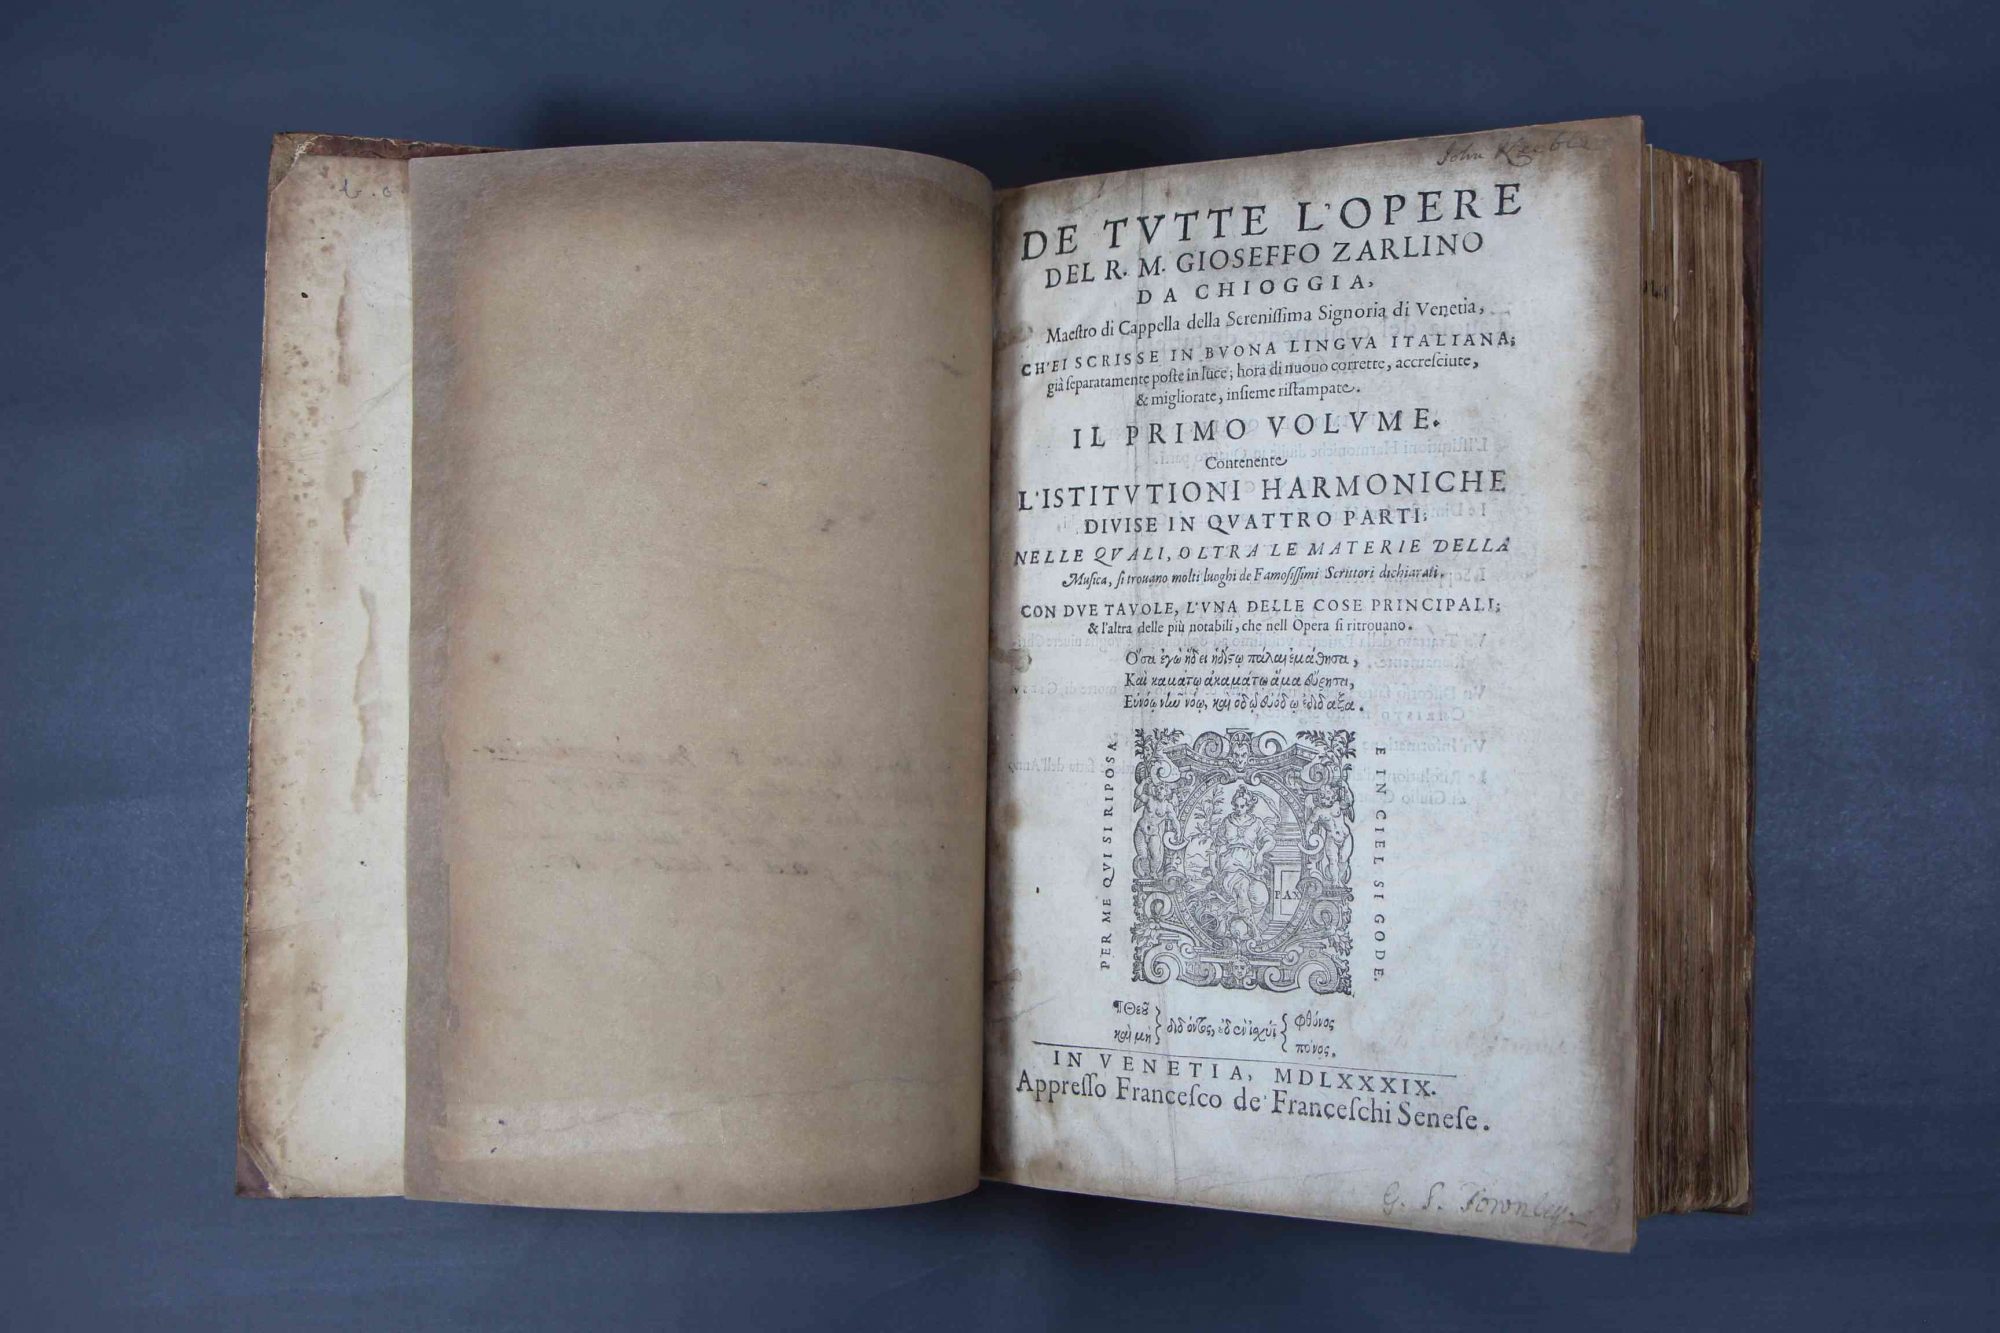 John Keeble
DE TVTTE L'OPERE
DEL R. M. GIOSEFFO ZARLINO
DA CHIOGGIA,
Maestro di Cappella della Sereniſſima Signoria di Venetia,
CH'EI SCRISSE IN BVONA LINGVA ITALIANA;
già ſeparatamente poſte in luce; hora di nuouo corrette, accreſciute,
& migliorate, inſieme riſtampate.
IL PRIMO VOLVME.
Contenente
L'ISTITVTIONI HARMONICHE
DIVISE IN QVATTRO PARTI;
NELLE QVALI, OLTRA LE MATERIE DELLA
Muſica, ſi trouano molti luoghi de Famoſiſſimi Scrittori dichiarati.
CON DVE TAVOLE, L'VNA DELLE COSE PRINCIPALI;
& l'altra delle più notabili, che nell Opera ſi ritrouano.
Ὅσα ἐγὼ ἤδει ἡδίςῳ πάλαι ἐμάθησα,
Καὶ καμάτῳ ἀκαμάτῳ ἅμα εὕρησα,
Εὐνόῳ νῦν νοῳ, καὶ ὁδῷ εὐόδῳ ἐδίδαξα.
PER ME QVI SI RIPOSA
E IN CIEL SI GODE.
PAX
¶ Θεοῦ
καὶ μὴ
διδόντος, ἐδὲν ἰσχύει
Φθόνος
πόνος.
IN VENETIA, MDLXXXIX.
Appreſſo Franceſco de' Franceſchi Seneſe.
G. S. Townley